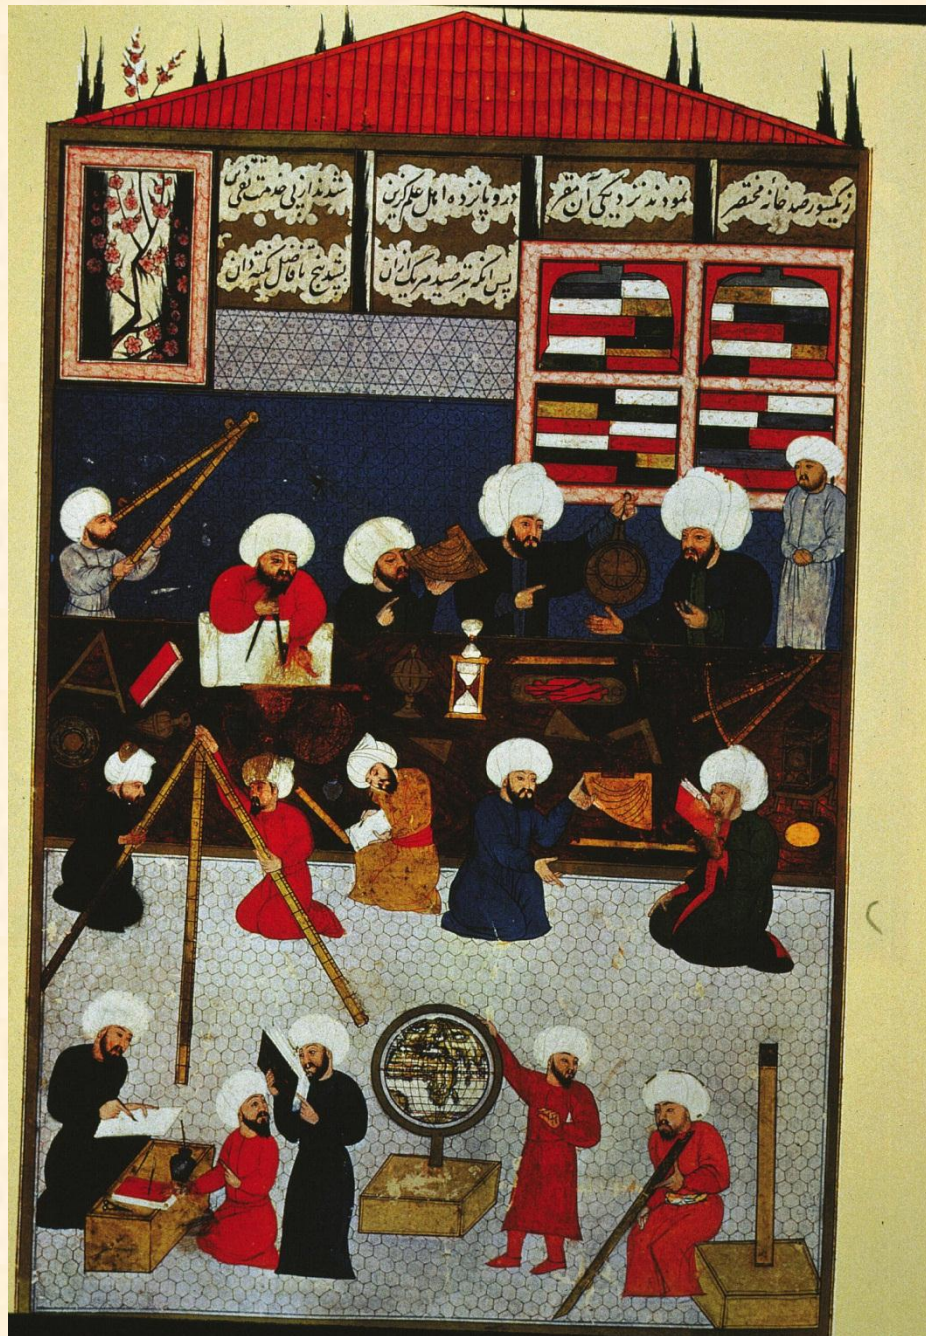 زیکسو رصد خانه مختصر
نمودند نزدیکی آن مقر
درو پانزده اهل علم گزین
شدند از پی خدمت تقی دین
پس انگه بترصید هر یک ازان
بشد پنج با فاضل نکته دان